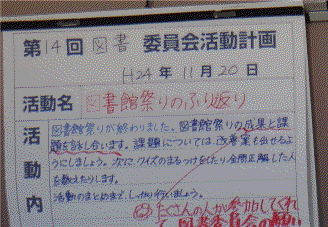 第14回 図書 委員会活動計画
H24年 11月 20日
活動名 図書館祭りのふり返り
活動内
図書館祭りが終わりました。図書館祭りの成果と課
題を話し合います。課題については、改善案も出せるよ
うにしましょう。次に、クイズのまるつけをしたり、全問正解した人
を数えたりします。
活動のまとめまで、しっかり行いましょう。
たくさんの人が参加してくれ
図書委員会の